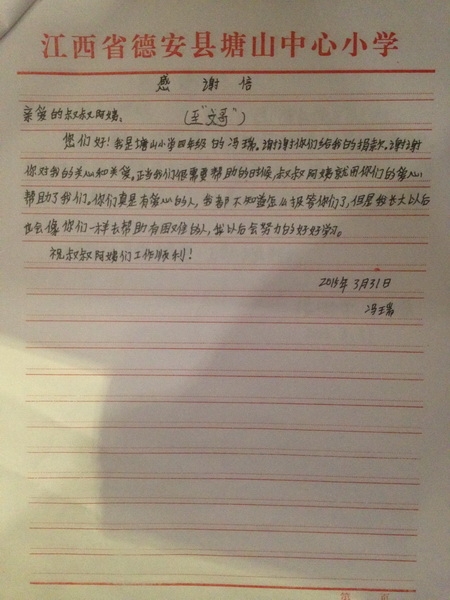 江西省德安县塘山中心小学
感谢信
亲爱的叔叔阿姨：
（至“文哥”）
您们好！我是塘山小学四年级的冯瑞。谢谢你们给我的捐款。谢谢
你对我的关心和关爱。正当我们很需要帮助的时候，叔叔阿姨就用你们的爱心
帮助了我们。你们真是有爱心的人，我都不知道怎么报答你们了，但是我长大以后
也会像你们一样去帮助有困难的人，我以后会努力的好好学习。
祝叔叔阿姨们工作顺利！
2015年3月31日
冯瑞
第 页